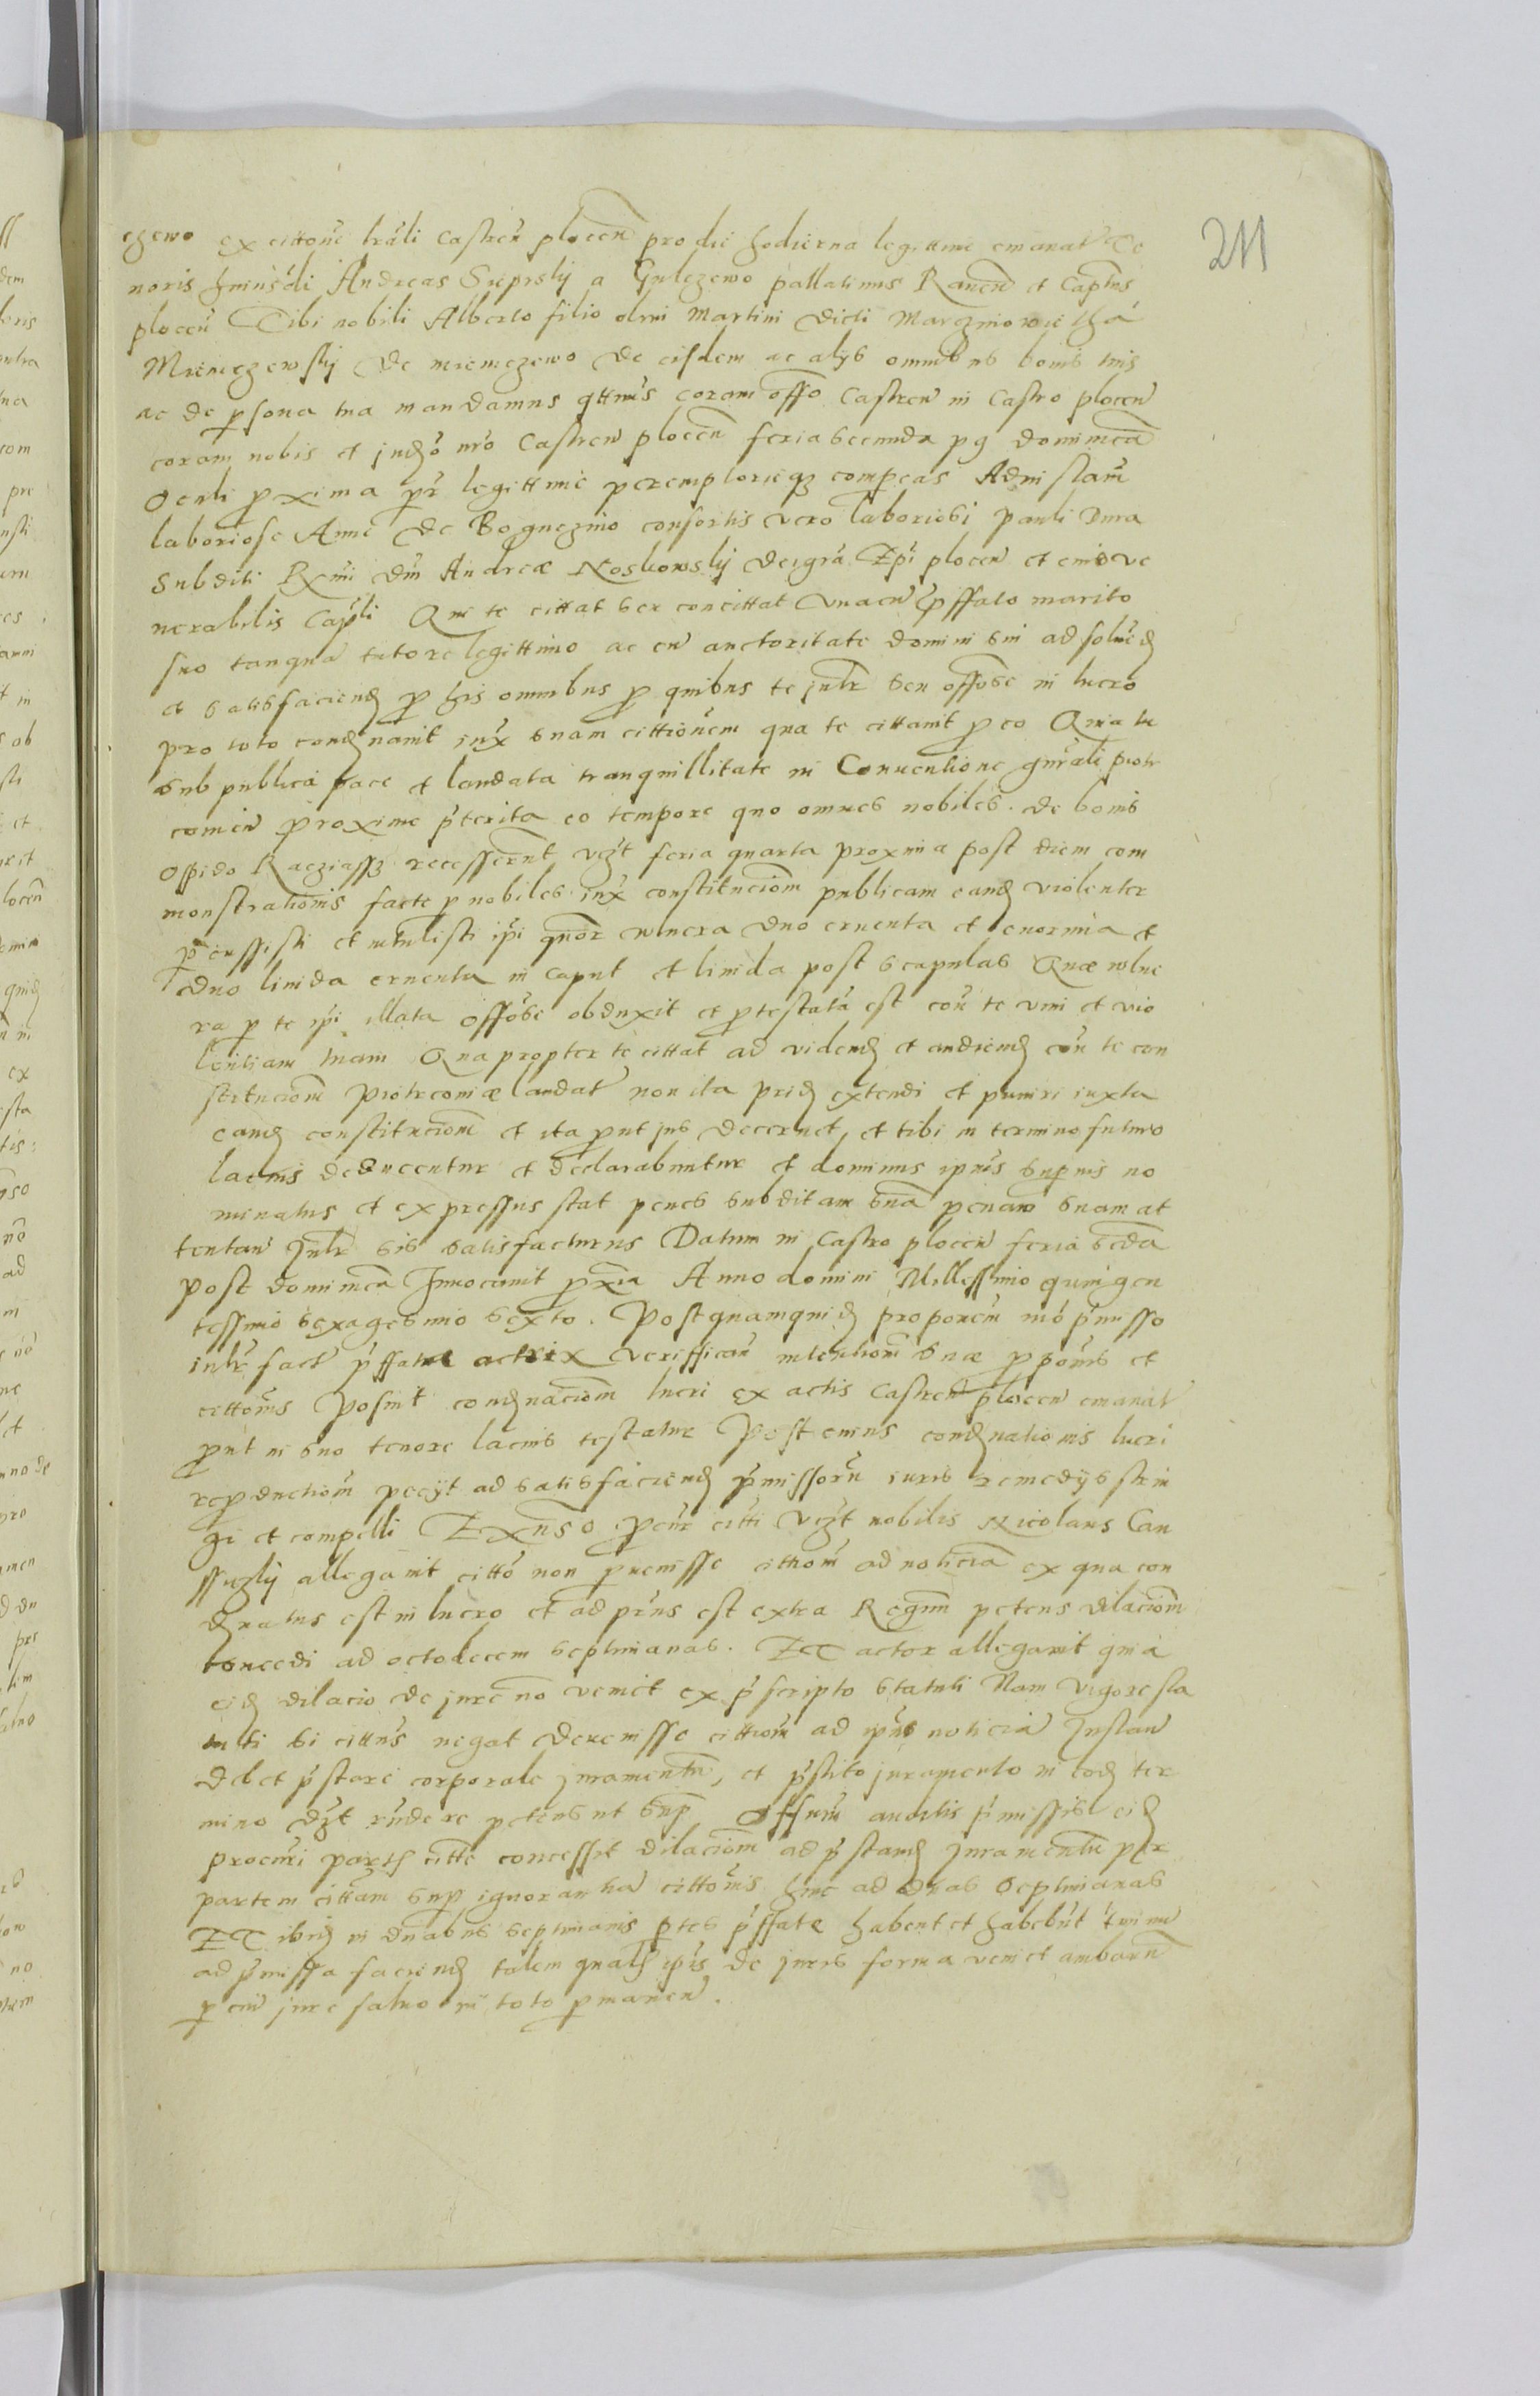 211
czewo ex cittone lrali Castren plocen pro die hodierna legittime emanat Te
noris huiusdi Andreas Sieprskij a Gulczewo pallatinus Raven et Captus
plocen Tibi nobili Alberto filio olim Martini dicti Marczinowi cha
Miemczewskij de miemczewo de eisdem ac alijs omnibus bonis tuis
ac de persona tua mandamus qttnus coram offo Castren in Castro plocen
coram nobis et judo nro Castren plocen feria secunda pg dominica
Oculi proxima pr legittime peremptorieqz compeas Ad instam
laboriose Anne de Boguczino consortis vero laboriosi Pauli Dura
Subditi Rxmi dni Andreæ Noskowskij dei gra Epi plocen et eius ve
nerabilis Capli Que te cittat seu concittat vnacu pffato marito
suo tanqua tutore legittimo ac cu auctoritate domini sui ad solued
et satisfaciend pro his omnibus pro quibus te julr seu offose in lucro
pro toto condnavit iux suam cittionem qua te cittavit pro eo Quia tu
sub publica pace et laudata tranquillitate in Conuentione gnrali piotr
comien proxime pterita eo tempore quo omnes nobiles de bonis
Opido Racziassz recesserunt vzt feria quarta proxima post diem com
monstrationis facte p nobiles iux constitucionm publicam eand violenter
percussisti et intulisti ipi vulnera duo cruenta et enormia et
duo liuida cruenta in caput et liuida post scapulas Quæ vulne
ra per te ipi illata offose obduxit et protestata est con te vim et vio
lentiam tuam Quapropter te cittat ad videnд et audiend con te con
stitucionm Piotrcomiæ laudat non ita prid extendi et puniri iuxta
eand constitucionm et ita prout jus decernet, et tibi in termino futuro
lacius deducentur et declarabuntur et dominus ipius superius no
minatus et expressus stat penes subditam sua penam suam at
tentan Julr sis satisfacturus Datum in Castro plocen feria scda
post dominica Inuocavit proxia Anno domini Millessimo quingen
tessimo sexagesimo sexto. Postquamquid proporcem mo pmisso
intr fact pffate actrix veriffican intentionm suæ propönis et
cittonis Posuit condnacionm lucri ex actis Castren plocen emanat
prout in suo tenore lacius testatur Post cuius condnationis lucri
reproductionm peciit ad satisfaciend pmissoru iuris remedijs strin
gi et compelli Exnso pcur citti vzt nobilis Nicolaus Can
allegavit citto non pruenisse cittionm ad noticia ex qua con
dnatus est in lucro et ad prns est extra Regnu petens dilacionm
concedi ad octodecem septimanas. ET actor allegavit quia
eid dilacio de jure no veniet ex pscripto Statuti Nam vigore sta
tuti si cittus negat deuenisse cittionm ad ipius noticia Instan
debet pstare corporale juramentu, et pstito juramento in eod ter
mino dzt rndere petens ut sup Offium auditis pmissis eid
procuri partis citte concessit dilacionm ad pstand juramentu per
partem cittam sup ignorantia cittonis hinc ad duas Septimanas
ET ibid in duabus septimanis ptes pffate habent et habebut tminu
ad pmissa faciend talem qualis ipis de juris forma veniet ambaru
pciu jure saluo in toto pmanen.